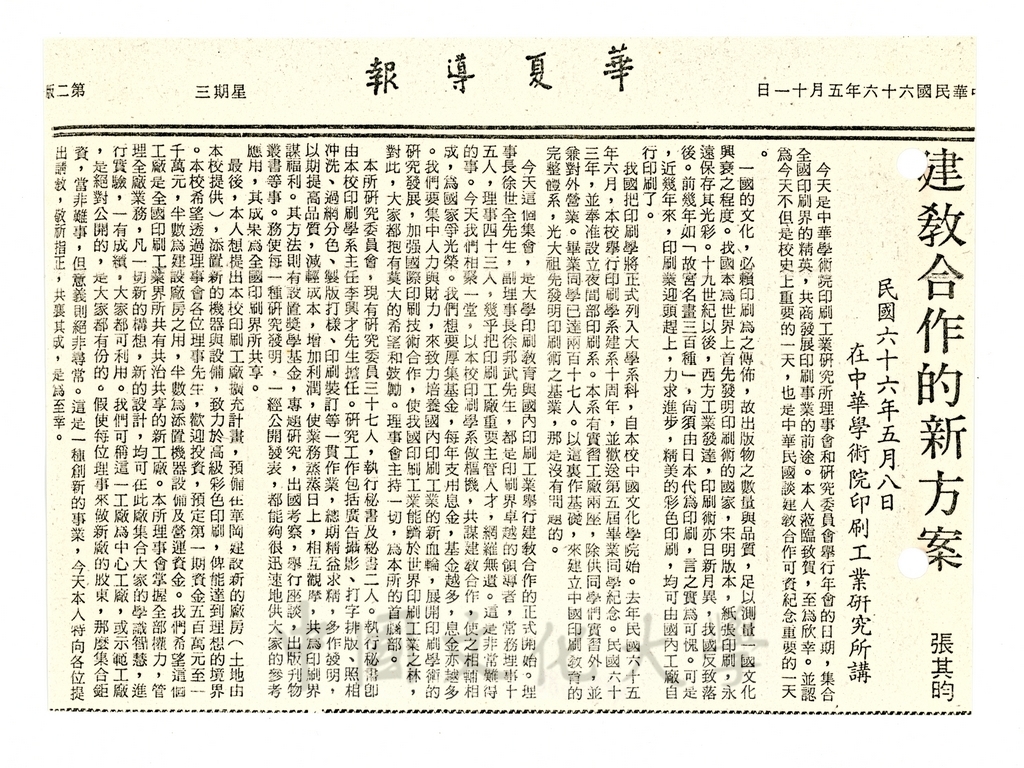 中華民國六十六年五月十一日
華夏導報
星期三
第二版
建教合作的新方案
張其昀
民國六十六年五月八日
在中華學術院印刷工業研究所講
今天是中華學術院印刷工業研究所理事會和研究委員會舉行年會的日期,集合
全國印刷界的精英,共商發展印刷事業的前途。本人蒞臨致賀,至為欣幸。並認
為今天不但是校史上重要的一天,也是中華民國談建教合作可資紀念重要的一天
。
一國的文化,必賴印刷為之傳佈,故出版物之數量與品質,足以測量一國文化
興衰之程度。我國本為世界上首先發明印刷術的國家,宋明版本,紙張印刷,永
遠保存其光彩。十九世紀以後,西方工業發達,印刷術亦日新月異,我國反致落
後。前幾年如「故宮名畫三百種」,尚須由日本代為印刷,言之實為可愧。可是
,近幾年來,印刷業迎頭趕上,力求進步,精美的彩色印刷,均可由國內工廠自
行印刷了。
我國把印刷學將正式列入大學系科,自本校中國文化學院始。去年民國六十五
年六月,本校舉行印刷學系建系十周年,並歡送第五屆畢業同學紀念。民國六十
三年,並奉准設立夜間部印刷系。本系有實習工廠兩座,除供同學們實習外,並
兼對外營業。畢業同學已達兩百十七人。以這裏作基礎,來建立中國印刷教育的
完整體系,務使光大祖先發明印刷術之基業,那是沒有問題的。
今天這個集會,是大學印刷教育與國內印刷工業舉行建教合作的正式開始。理
事長徐世全先生,副理事長徐邦武先生,都是印刷界卓越的領導者,常務理事十
五人,理事四十三人,幾乎把印刷工廠重要主管人才,網羅無遺。這是非常難得
的事。今天我們相聚一堂,以本校印刷學系做樞機,共謀建教合作,使之相輔相
成,為國家爭光榮。我們想要厚集基金,每年支用息金,基金越多,息金亦越多
。我們要集中人力與財力,來致力培養國內印刷工業的新血輪,展開印刷學術的
研究發展,加強國際印刷技術合作,使我國印刷工業能躋於世界印刷工業之林,
對此,大家都抱有莫大的希望和鼓勵。理事會主持一切,為本所的首腦部。
本所研究委員會,現有研究委員三十七人,執行秘書及秘書二人。執行秘書即
由本校印刷學系主任李興才先生擔任。研究工作包括廣告攝影、打字排版、照相
沖洗、過網分色、製版打樣、印刷裝訂等一貫作業,總期精益求精,多作發明,
以期提高品質,減輕成本,增加利潤,使業務蒸蒸日上,相互觀摩,共為印刷界
謀福利。其方法則有設置獎學基金,專題研究,出國考察,舉行座談,出版刊物
叢書等事。務使每一種研究發明,一經公開發表,都能夠很迅速地供大家的參考
應用,其成果為全國印刷界所共享。
最後,本人想提出本校印刷工廠擴充計畫,預備在華岡建設新的廠房(土地由
本校提供),添置新的機器與設備,致力於高級彩色印刷,俾能達到理想的境界
。本校希望透過理事會各位理事先生,歡迎投資,預定第一期資金五百萬元至一
千萬元,半數為建設廠房之用,半數為添置機器設備及營運資金。我們希望這個
工廠是全國印刷工業界所共有共治共享的新工廠。本所理事會掌握全部權力,管
理全廠業務,凡一切新的構想,新的設計,均可在此廠集合大家的學識智慧,進
行實驗,一有成績,大家都可利用。我們可稱這一工廠為中心工廠,或示範工廠
,是絕對公開的,是大家都有份的。假使每位理事來做新廠的股東,那麼集合鉅
資,當非難事,但意義則絕非尋常。這是一種創新的事業,今天本人特向各位提
出請教,敬祈指正,共襄其成,是為至幸。
中國文化大學